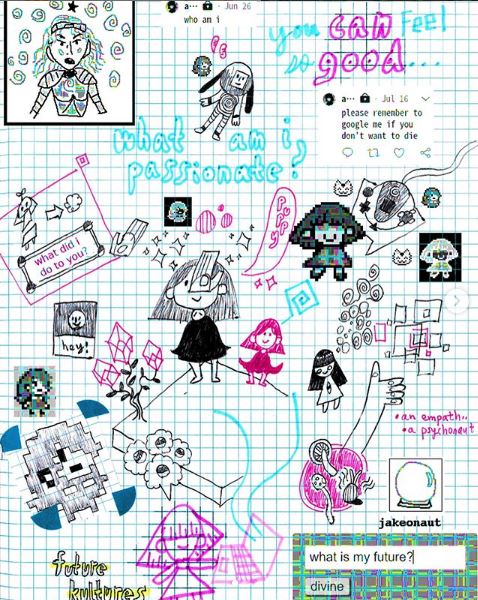 a··· 🔒 · Jun 26
who am i
you can feel
so good...
a··· 🔒 · Jul 16
please remember to
google me if you
don't want to die
what am i
passionate?
puppy
what did i
do to you?
hey!
•an empath..
•a psychonaut
jakeonaut
what is my future?
divine
future
kultures